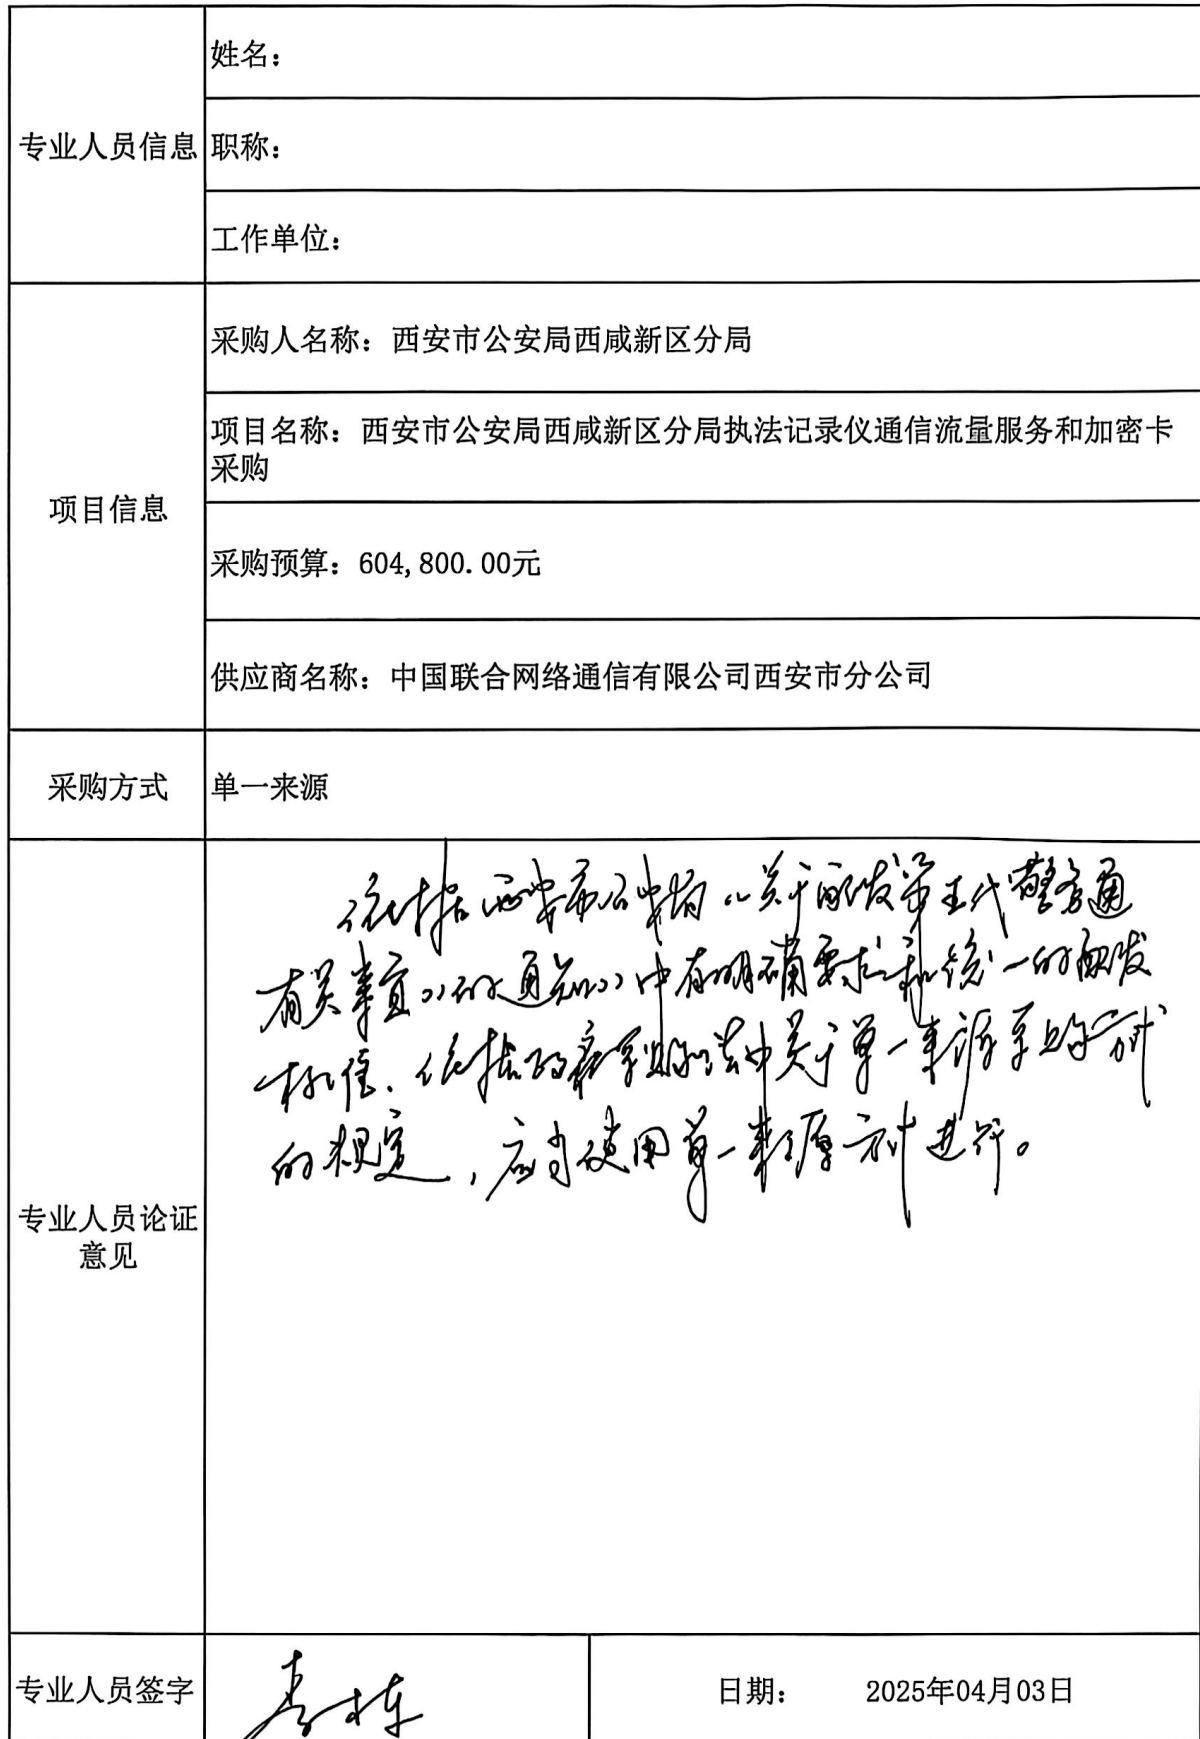 专业人员信息
姓名：
职称：
工作单位：
项目信息
采购人名称：西安市公安局西咸新区分局
项目名称：西安市公安局西咸新区分局执法记录仪通信流量服务和加密卡
采购
采购预算：604,800.00元
供应商名称：中国联合网络通信有限公司西安市分公司
采购方式
单一来源
专业人员论证
意见
依据西安市公安局《关于配发第五代警务通
有关事宜》的通知》中有明确要求和统一的配发
标准、依据政府采购法中关于单一来源采购方式
的规定，应当使用单一来源方式进行。
专业人员签字
日期：
2025年04月03日